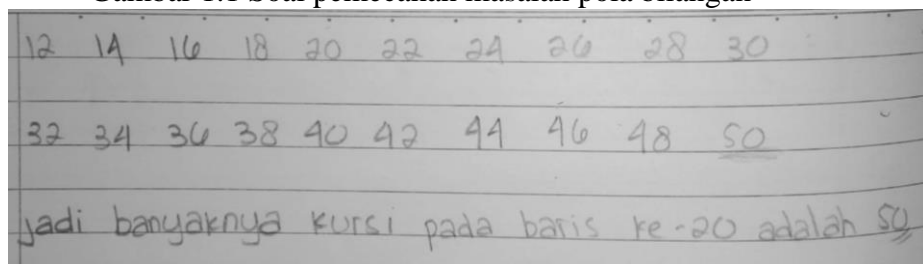 Gambar 1.1 Soal pemecahan masalah pola bilangan
12 14 16 18 20 22 24 26 28 30
32 34 36 38 40 42 44 46 48 50
jadi banyaknya kursi pada baris ke-20 adalah 50